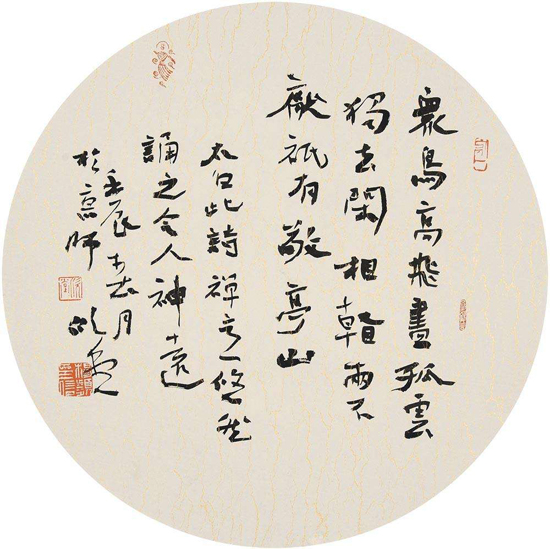 眾鳥高飛盡孤雲
獨去閑相看兩不
厭祇有敬亭山
太白此詩禪意悠然
誦之令人神遠
壬辰 月
於京師